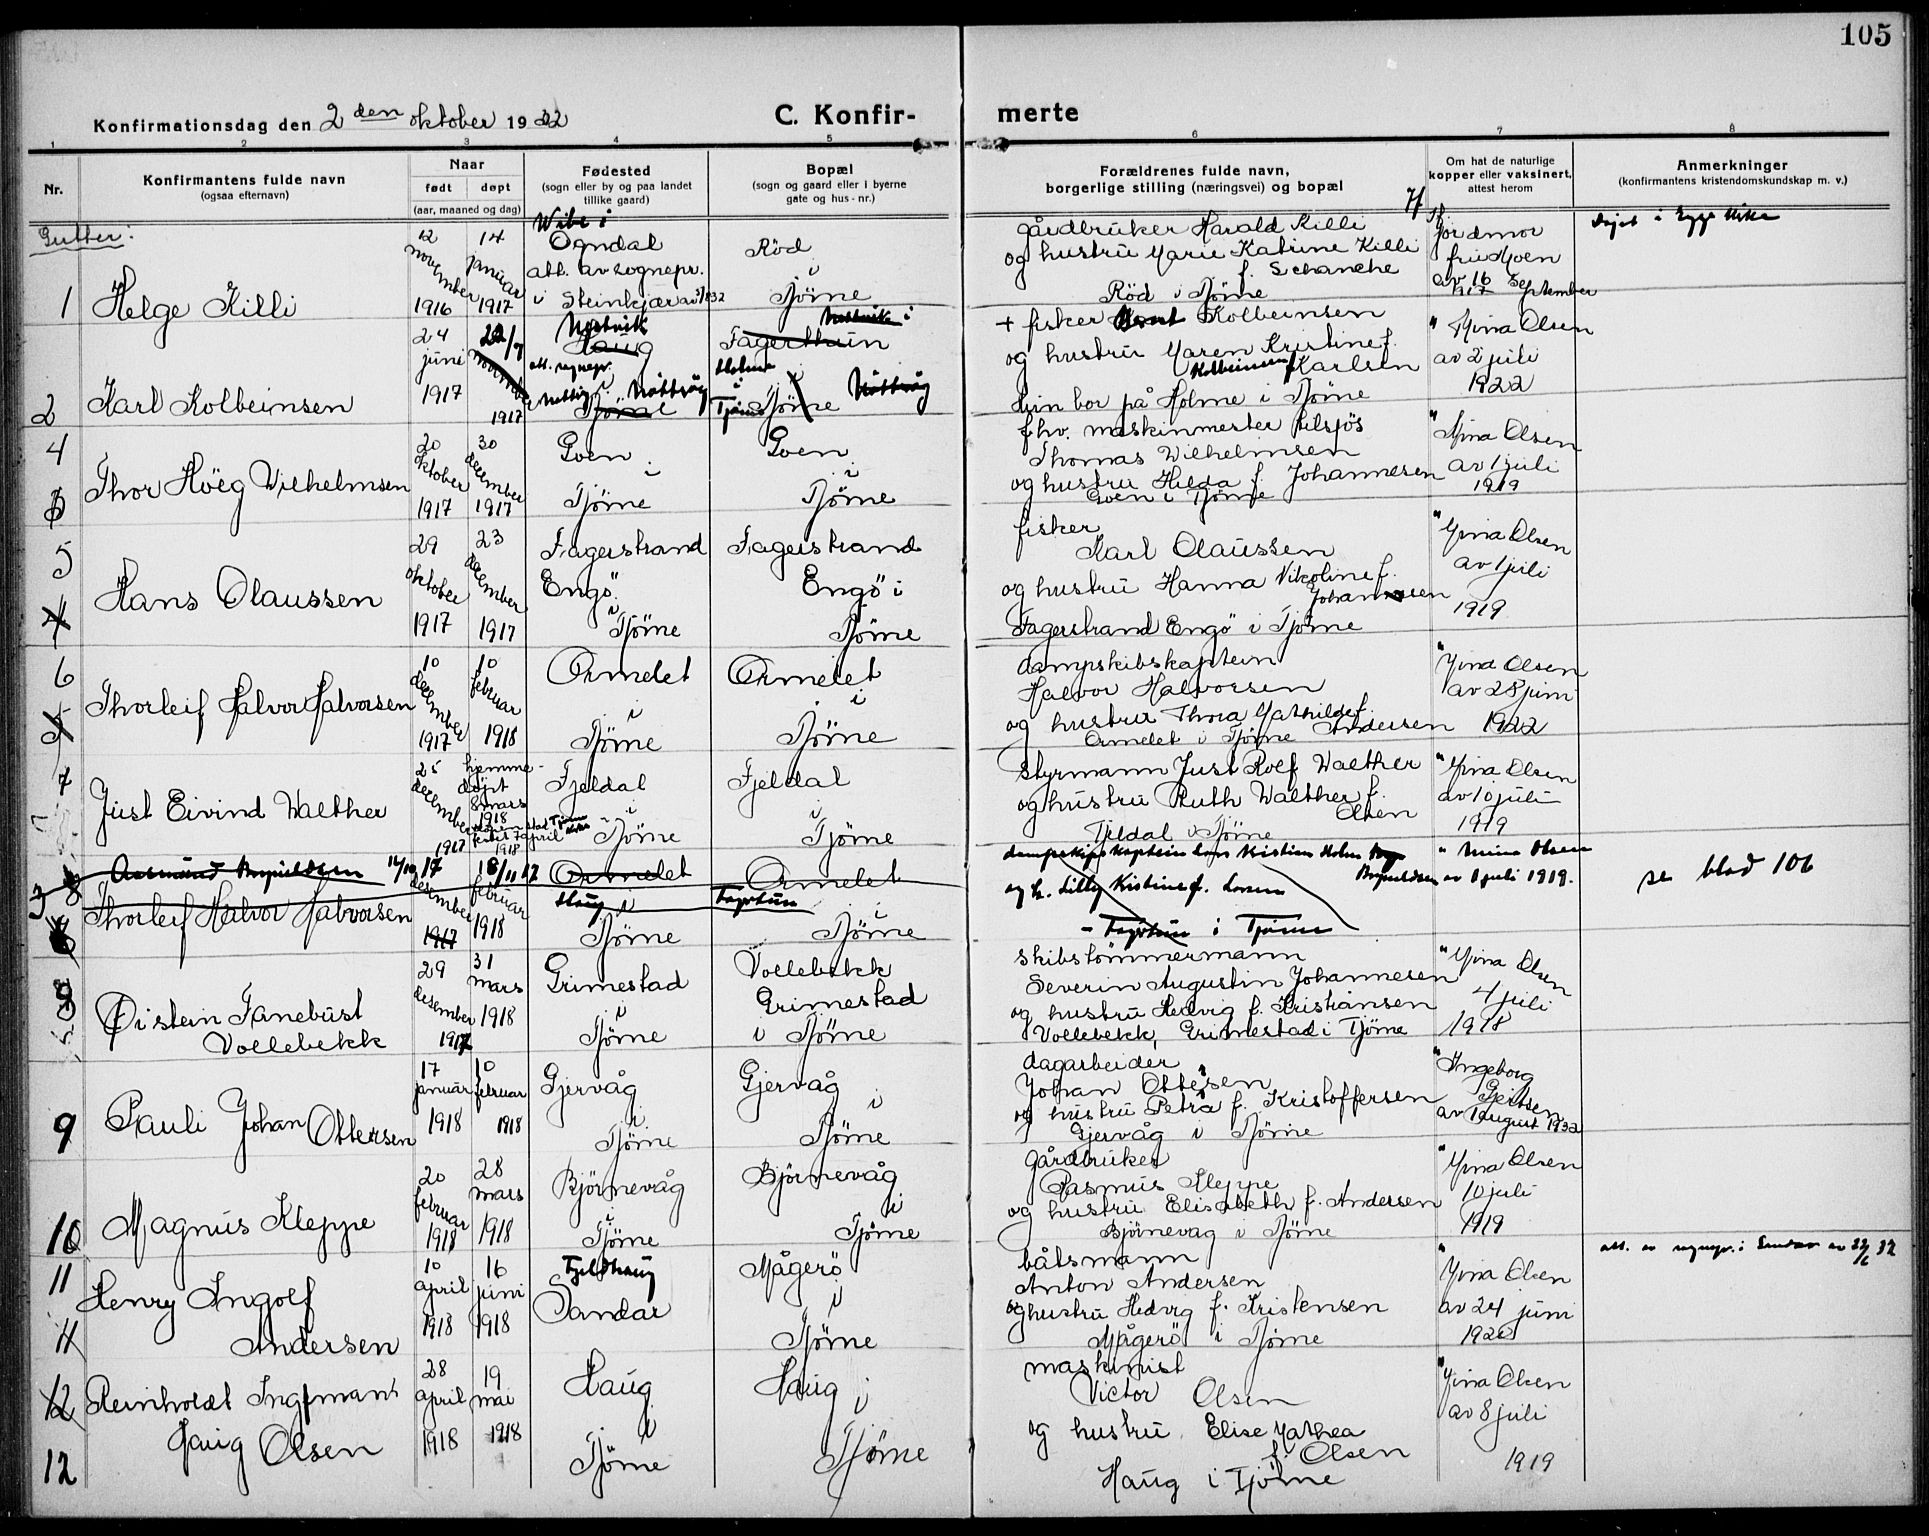 105
Konfirmationsdag den 2 den oktober 1932
C. Konfir-
merte
1 2 3 4 5 6 7 8
Nr.
Konfirmantens fulde navn
(ogsaa efternavn)
Naar
født døpt
(aar, maaned og dag)
Fødested
(sogn eller by og paa landet
tillike gaard)
Bopæl
(sogn og gaard eller i byerne
gate og hus-nr.)
Forældrenes fulde navn,
borgerlige stilling (næringsvei) og bopæl
Om hat de naturlige
kopper eller vaksinert,
attest herom
Anmerkninger
(konfirmantens kristendomskundskap m. v.)
Gutter:
1
Helge Killi
12 november 1916
14 januar 1917
Wibe i
Ogndal
att. av sognepr.
i Steinkjær
Röd
i
Tjöme
gårdbruker Harald Killi
og hustru Marie Katrine Killi
f. Schanche
Röd i Tjöme
jordmor
fru Moen
av 16 september
1917
2
Karl Kolbeinsen
24 juni 1917
1917
Haug
i
Tjöme
Fagerthun
Holme
i
Tjöme
+ fisker Kolbeinsen
og hustru Maren Kristine f.
Karlsen
Hun bor på Holme i Tjöme
" Mina Olsen
av 2 juli
1922
4
Thor Höeg Vilhelmsen
20 oktober 1917
30 december 1917
Goen
i
Tjöme
Goen
i
Tjöme
fhv. maskinmester tilsjös
Thomas Wilhelmsen
og hustru Hilda f. Johannesen
Goen i Tjöme
" Mina Olsen
av 1 juli
1919
5
Hans Olaussen
29 oktober 1917
23 december 1917
Fagerstrand
Engö
i
Tjöme
Fagerstrand
Engö i
Tjöme
fisker
Karl Olaussen
og hustru Hanna Nikoline f.
Johannesen
Fagerstrand Engö i Tjöme
" Mina Olsen
av 1 juli
1919
6
Thorleif Halvor Halvorsen
10 december 1917
10 februar 1918
Ormelet
i
Tjöme
Ormelet
i
Tjöme
dampskibskaptein
Halvor Halvorsen
og hustru Thora Mathilde f.
Andersen
Ormelet i Tjöme
" Mina Olsen
av 28 juni
1922
7
Just Eivind Walther
25 december 1917
hjemme-
döpt
8 mars
1918
7 april
1918
Fjeldal
i
Tjöme
Fjeldal
i
Tjöme
styrmann Just Rolf Walther
og hustru Ruth Walther f.
Olsen
Fjeldal i Tjöme
" Mina Olsen
av 10 juli
1919
Thorleif Halvor Halvorsen
desember
1917
februar
1918
Ormelet
Haug i
Tjöme
Ormelet
i
Tjöme
dampskips kaptein Lars Kristian Holm
og h. Lilly Kristine f. Larsen
i Tjöme
" Mina Olsen
av 1 juli 1919.
se blad 106
8
Øistein Fanebust
Vollebekk
29 desember 1917
31 mars 1918
Grimestad
i
Tjöme
Vollebekk
Grimestad
i Tjöme
skibstömmermann
Severin Augustin Johannesen
og hustru Hedvig f. Kristiansen
Vollebekk, Grimestad i Tjöme
" Mina Olsen
4 juli
1918
9
Pauli Johan Ottersen
17 januar 1918
10 februar 1918
Gjervåg
i
Tjöme
Gjervåg
i
Tjöme
dagarbeider
Johan Ottersen
og hustru Petra f. Kristoffersen
Gjervåg i Tjöme
" Ingeborg
Gjertsen
av 1 august 1932
10
Magnus Kleppe
20 februar 1918
28 mars 1918
Björnevåg
i
Tjöme
Björnevåg
i
Tjöme
gårdbruker
Rasmus Kleppe
og hustru Elisabeth f. Andersen
Björnevåg i Tjöme
" Mina Olsen
10 juli
1919
11
Henry Ingolf
Andersen
10 april 1918
16 juni 1918
Fjeldhaug
Sandar
Mågerö
i
Tjöme
båtsmann
Anton Andersen
og hustru Hedvig f. Kristensen
Mågerö i Tjöme
" Mina Olsen
av 24 juni
att. av sognepr. i Sandar av 22/6 32
12
Reinholdt Ingemann
Haug Olsen
28 april 1918
19 mai 1918
Haug
i
Tjöme
Haug
i
Tjöme
maskinist
Victor Olsen
og hustru Elise Mathea
f. Olsen
Haug i Tjöme
" Mina Olsen
av 8 juli
1919